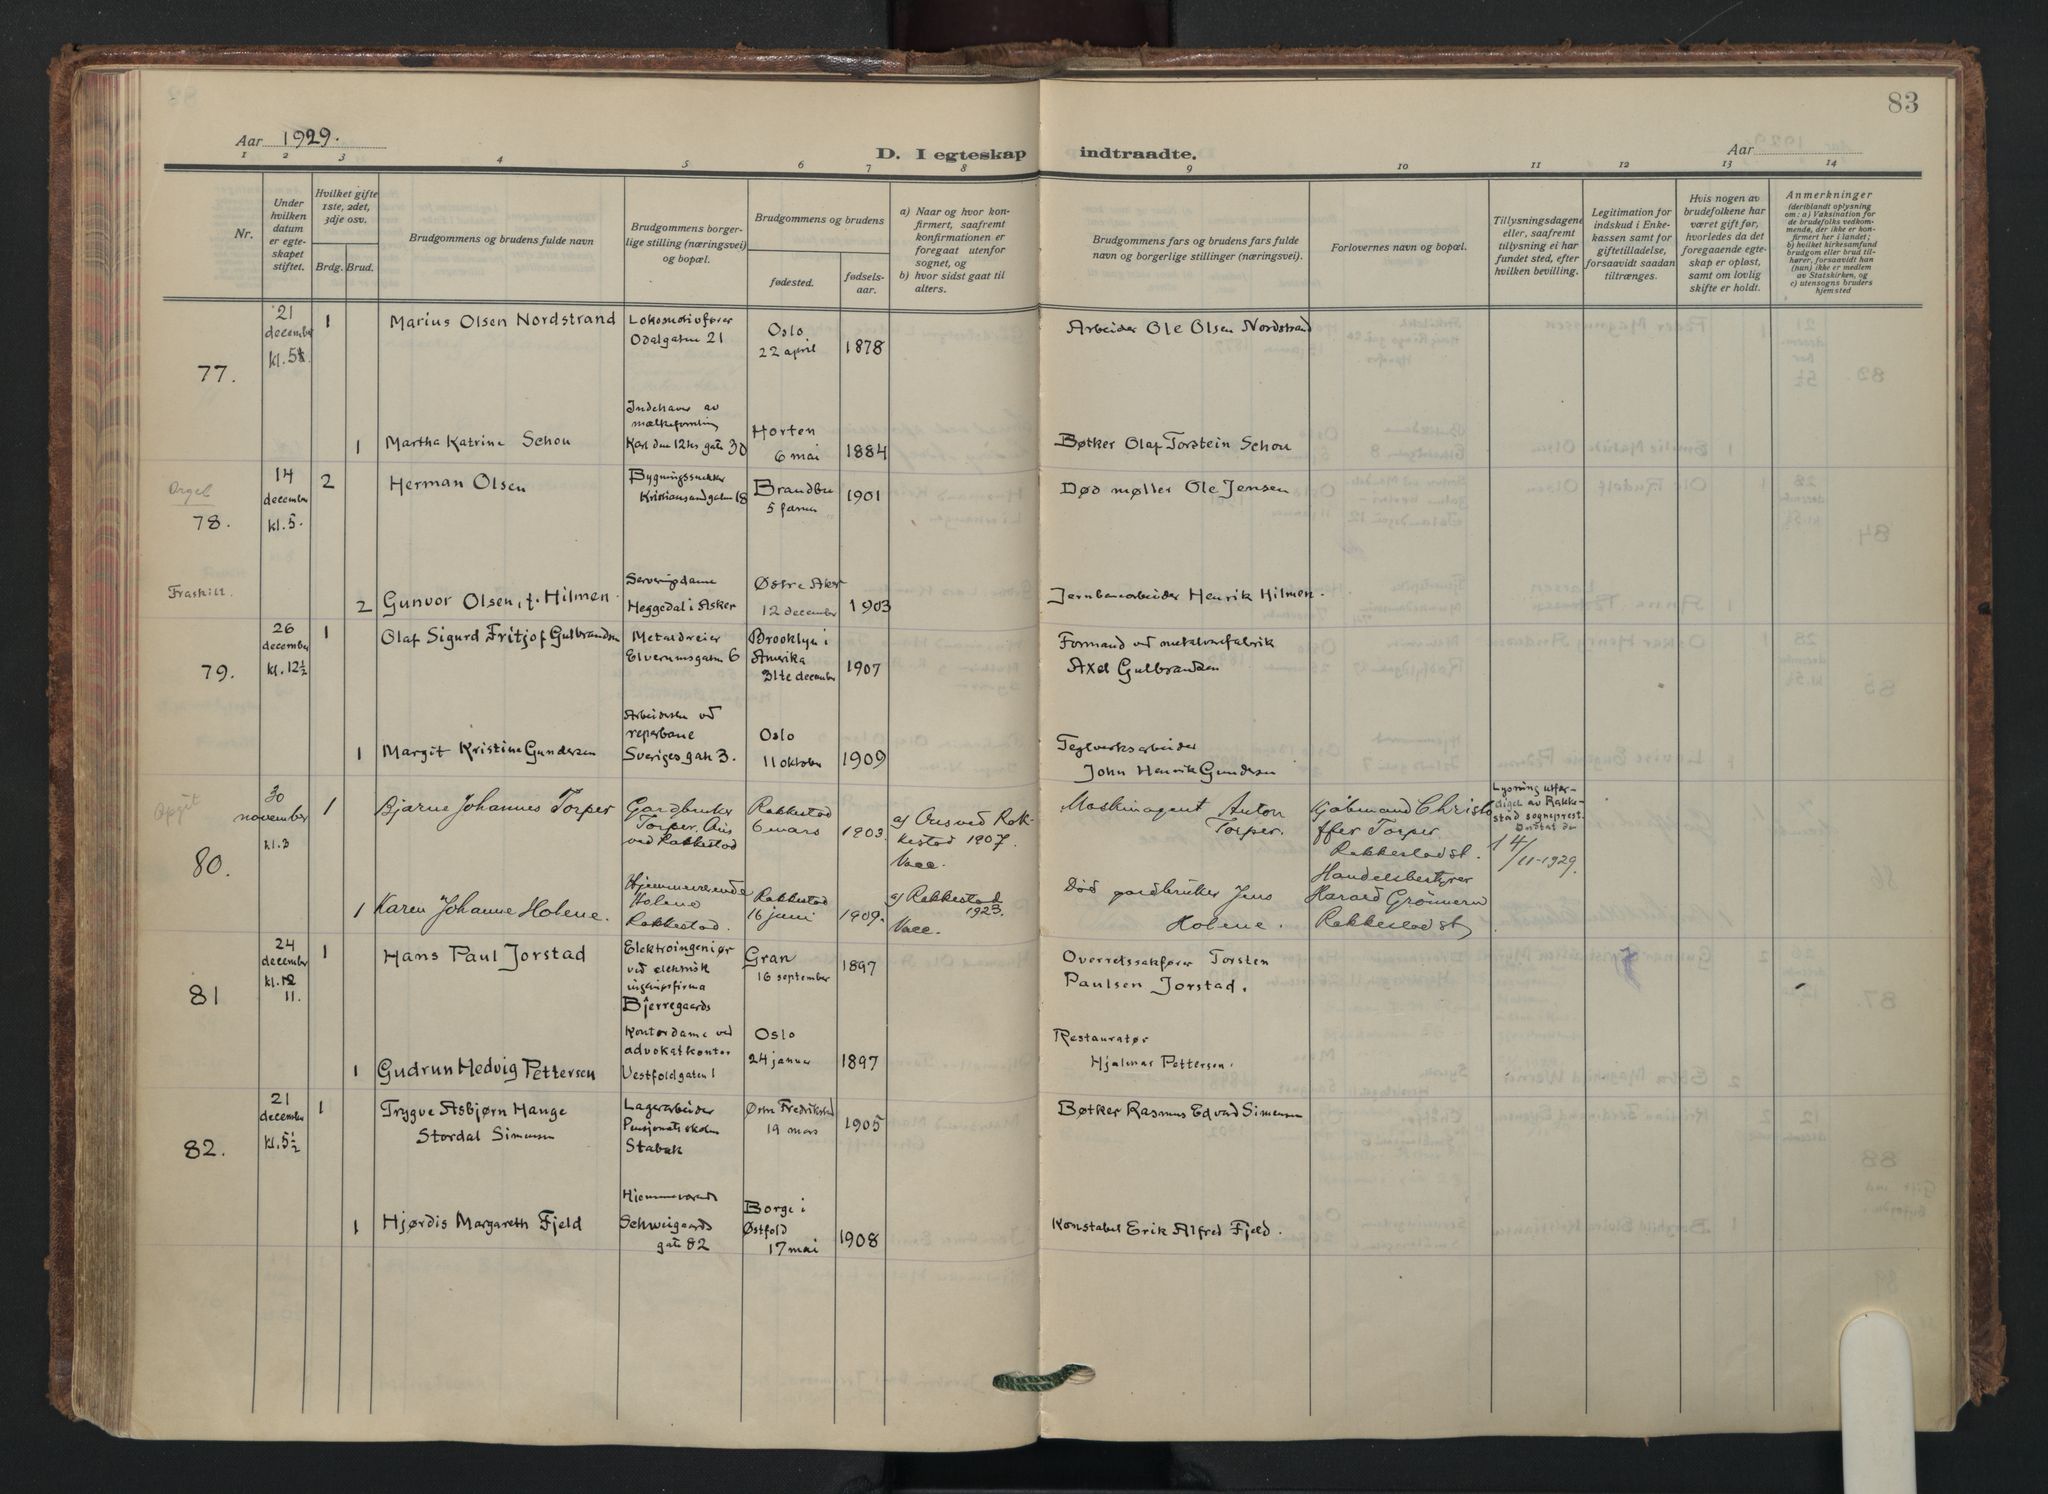 83
Aar 1929.
D. I egteskap indtraadte.
Aar
1 2 3 4 5 6 7 8 9 10 11 12 13 14
Nr.
Under hvilken datum er egteskapet stiftet.
Hvilket gifte 1ste, 2det, 3dje osv.
Brdg. Brud.
Brudgommens og brudens fulde navn
Brudgommens borgerlige stilling (næringsvei) og bopæl.
Brudgommens og brudens
fødested.
fødselsaar.
a) Naar og hvor konfirmert, saafremt konfirmationen er foregaat utenfor sognet, og
b) hvor sidst gaat til alters.
Brudgommens fars og brudens fars fulde navn og borgerlige stillinger (næringsvei).
Forlovernes navn og bopæl.
Tillysningsdagene eller, saafremt tillysning ei har fundet sted, efter hvilken bevilling.
Legitimation for indskud i Enkekassen samt for giftetilladelse, forsaavidt saadan tiltrænges.
Hvis nogen av brudefolkene har været gift før, hvorledes da det foregaaende egteskap er opløst, samt om lovlig skifte er holdt.
Anmerkninger
(deriblandt oplysning om: a) Vaksination for de brudefolks vedkommende, der ikke er konfirmert her i landet; b) hvilket kirkesamfund brudgom eller brud tilhører, forsaavidt han (hun) ikke er medlem av Statskirken, og c) utensogns bruders hjemsted
77.
21 december
1
Marius Olsen Nordstrand
Lokomotivfører
Odalgaten 21
Oslo
22 april
1878
Arbeider Ole Olsen Nordstrand
1
Martha Katrine Schou
Indehaver av
Karl den 12tes gate 30
Horten
6 mai
1884
Bøtker Olaf Torstein Schou
Orgel
78.
14 december
kl. 5.
2
Herman Olsen
Bygningssnekker
Kristiansandgaten 18
Brandbu
1901
Død møller Ole Jensen
Fraskilt.
2
Gunvor Olsen, f. Hilmen.
Serveringsdame
Heggedal i Asker
Østre Aker
12 december
1903
Jernbanearbeider Henrik Hilmen.
79.
26 december
kl. 12½
1
Olaf Sigurd Fritjof Gulbrandsen
Metaldreier
Elverumsgaten 6
Brooklyn i
Amerika
31te december
1907
Formand ved metalvarefabrik
Axel Gulbrandsen
1
Margit Kristine Gundersen
Arbeiderske ved
reperbane
Sverigesgate 3.
Oslo
11 oktober
1909
Teglverksarbeider
John Henrik Gundersen
80.
30 november
kl. 3
1
Bjarne Johannes Torper
Gardbruker
Torper. Ous
ved Rakkestad
Rakkestad
6 mars
1903.
a) Ous ved Rakkestad 1907.
Maskinagent Anton
Torper.
Kjøbmand Christoffer Torper.
Rakkestad st.
Lysning utferdiget av Rakkestad sogneprest.
14/11-1929.
1
Karen Johanne Holene.
Hjemmeværende
Holene
Rakkestad.
Rakkestad
16 juni
1909.
a) Rakkestad
1923.
Død gardbruker Jens
Holene.
Handelsbestyrer
Harald Grönnern
Rakkestad st
81
24 december
kl. 12
11.
1
Hans Paul Jorstad
Elektroingeniør
ved elektrisk
ingeniørfirma
Bjerregaards
Gran
16 september
1897
Overretssakfører Torsten
Paulsen Jorstad.
1
Gudrun Hedvig Pettersen
Kontordame ved
advokatkontor
Vestfoldgaten 1
Oslo
24 januar
1897
Restauratør
Hjalmar Pettersen.
82.
21 december
kl. 5½
1
Trygve Asbjørn Hauge
Stordal Simensen
Lagerarbeider
Pensjonatskolen
Stabæk
Østre Fredrikstad
19 mars
1905
Bøtker Rasmus Edvard Simensen
1
Hjørdis Margareth Fjeld
Hjemmeværende
Schweigaards
gate 82
Borge i
Østfold
17 mai
1908
Konstabel Erik Alfred Fjeld.